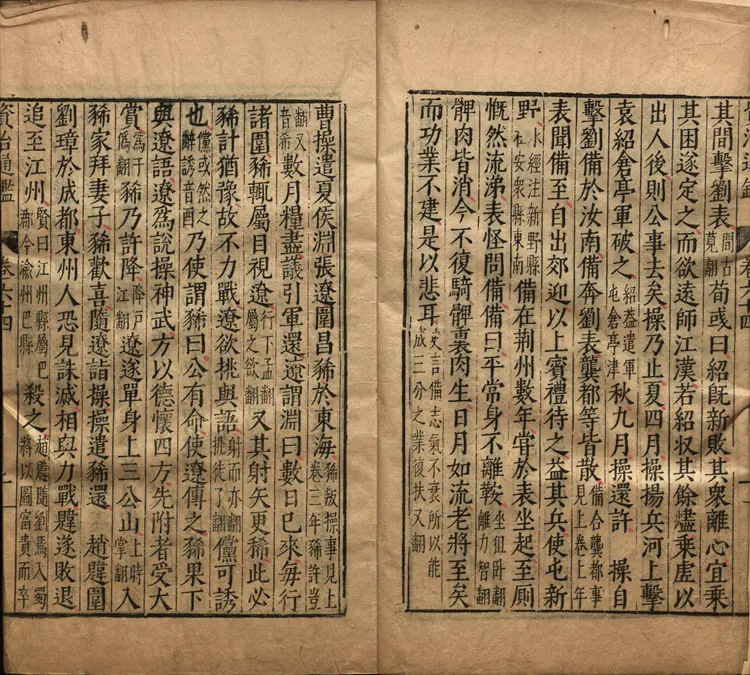 其間擊劉表間古莧翻荀彧曰紹旣新敗其衆離心宜乘
其困遂定之而欲遠師江漢若紹収其餘燼乘虛以
出人後則公事去矣操乃止夏四月操揚兵河上擊
袁紹倉亭軍破之紹葢遣軍屯倉亭津秋九月操還許　操自
擊劉備於汝南備奔劉表龔都等皆散備合龔都事見上卷上年
表聞備至自出郊迎以上賓禮待之益其兵使屯新
野水經注新野縣在安衆縣東南備在荆州數年嘗於表坐起至厠
慨然流涕表怪問備備曰平常身不離鞍坐徂卧翻離力智翻
髀肉皆消今不復騎髀裏肉生日月如流老將至矣
而功業不建是以悲耳史言備志氣不衰所以能成三分之業復扶又翻
曹操遣夏侯淵張遼圍昌豨於東海豨叛操事見上卷三年豨許豈
翻又音希數月糧盡議引軍還遼謂淵曰數日已來每行
諸圍豨輒屬目視遼行下孟翻屬之欲翻又其射矢更稀此必
豨計猶豫故不力戰遼欲挑與語射而亦翻挑徒了翻儻可誘
也儻或然之辭誘音酉乃使謂豨曰公有命使遼傳之豨果下
與遼語遼爲說操神武方以德懷四方先附者受大
賞爲于僞翻豨乃許降降戶江翻遼遂單身上三公山上時掌翻入
豨家拜妻子豨歡喜隨遼詣操操遣豨還　趙韙圍
劉璋於成都東州人恐見誅滅相與力戰韙遂敗退
追至江州賢曰江州縣屬巴郡今渝州巴縣殺之趙韙隨劉焉入蜀將以圖富貴而卒
資治通鑑　卷六十四